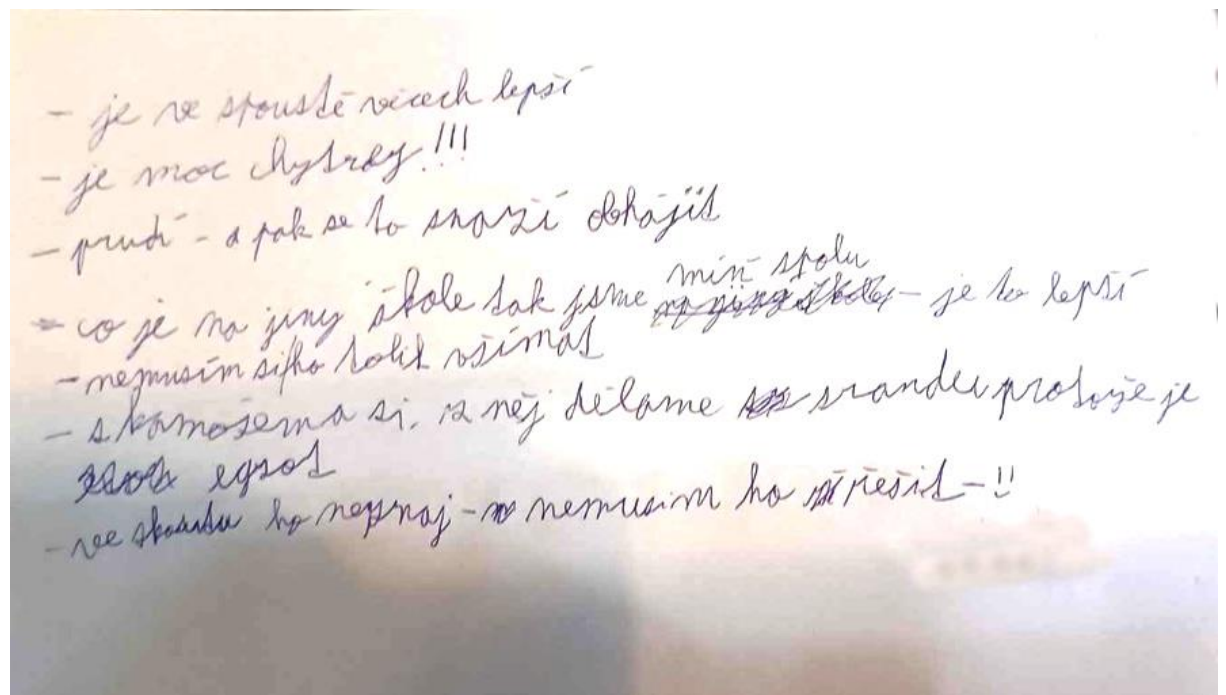 - je ve spoustě věcech lepší
- je moc chytrej!!!
- prudí - a pak se to snaží obhájit
- co je na jiný škole tak jsme míň spolu - je to lepší
- nemusím si ho tolik všímat
- s kamošema si z něj děláme srandu protože je
egsot
- ve skautu ho neznaj - nemusim ho řešit - !!